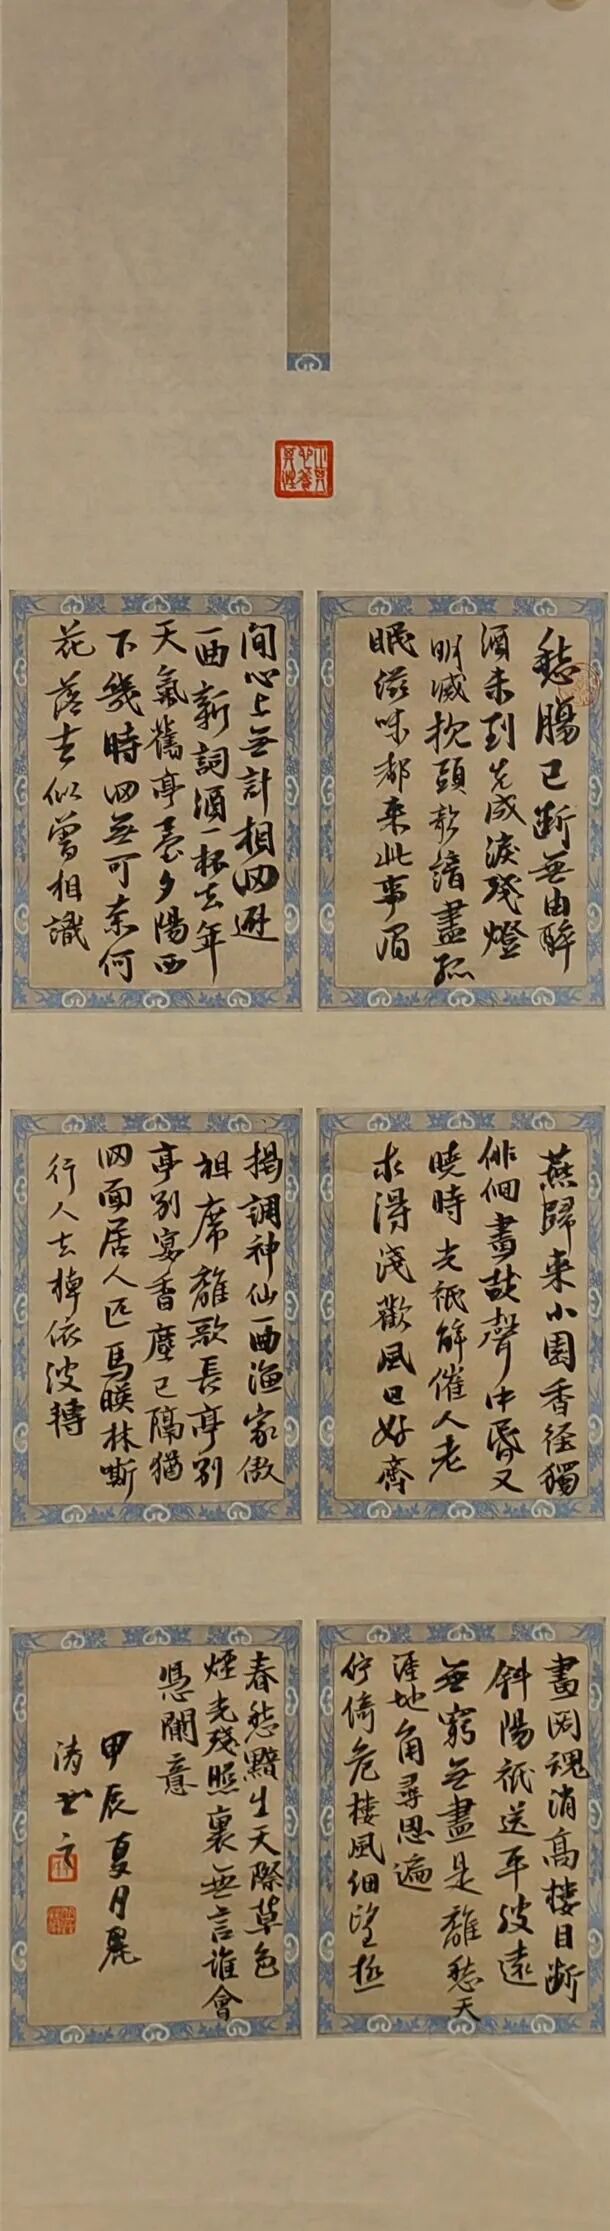 愁腸已斷無由醉
酒未到先成淚殘燈
明滅枕頭欹諳盡孤
眠滋味都來此事眉
間心上無計相迴避
一曲新詞酒一杯去年
天氣舊亭臺夕陽西
下幾時回無可奈何
花落去似曾相識
燕歸來小園香徑獨
徘徊畫鼓聲中昏又
曉時光祗解催人老
求得淺歡風日好齊
揭調神仙一曲漁家傲
祖席離歌長亭別
宴香塵已隔猶
回面居人匹馬映林嘶
行人去棹依波轉
畫閣魂消高樓目斷
斜陽祗送平波遠
無窮無盡是離愁天
涯地角尋思遍
佇倚危樓風細望極
春愁黯生天際草色
煙光殘照裏無言誰會
憑闌意
甲辰夏月
濤書